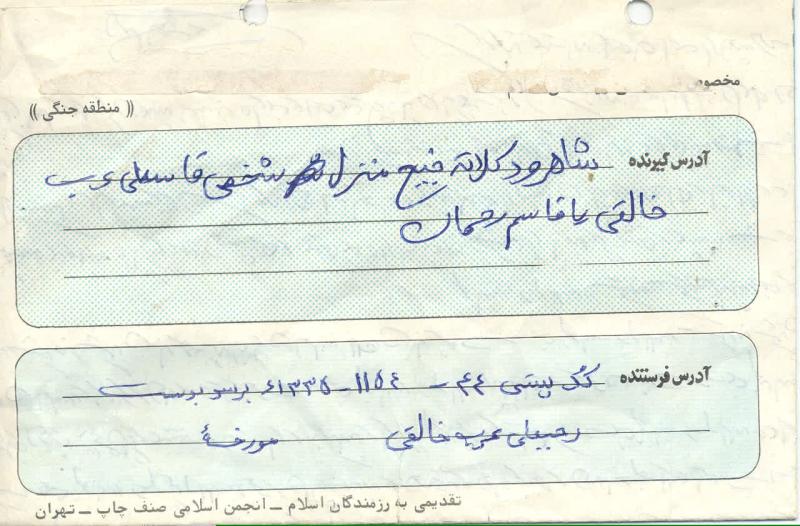 مخصوص
(( منطقه جنگی ))
آدرس گیرنده شاهرود کلاته خیج منزل شخصی قاسملی عرب
خالقی یا قاسم رحمان
آدرس فرستنده کد پستی ۴۴ – ۱۱۵۴ – ۶۱۳۳۵ برسد بدست
رجبعلی عرب خالقی مورخهٔ
تقدیمی به رزمندگان اسلام – انجمن اسلامی صنف چاپ – تهران